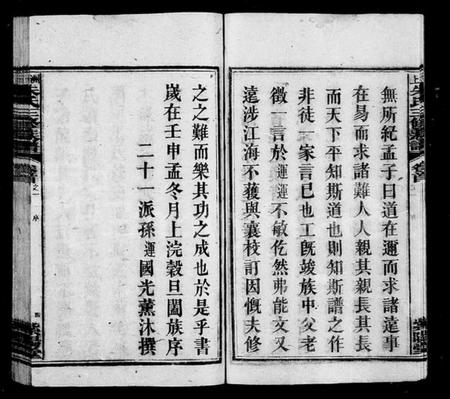 無所紀孟子曰道在邇而求諸遠事
在易而求諸難人人親其親長其長
而天下平知斯道也則知斯譜之作
非徒一家言已也工既竣族中父老
徵一言於運運不敏仡然弗能文又
遠涉江海不獲與襄校訂因慨夫修
之之難而樂其功之成也於是乎書
歲在壬申孟冬月上浣穀旦闔族序
二十一派孫運國光薰沐撰
卷首之一 序